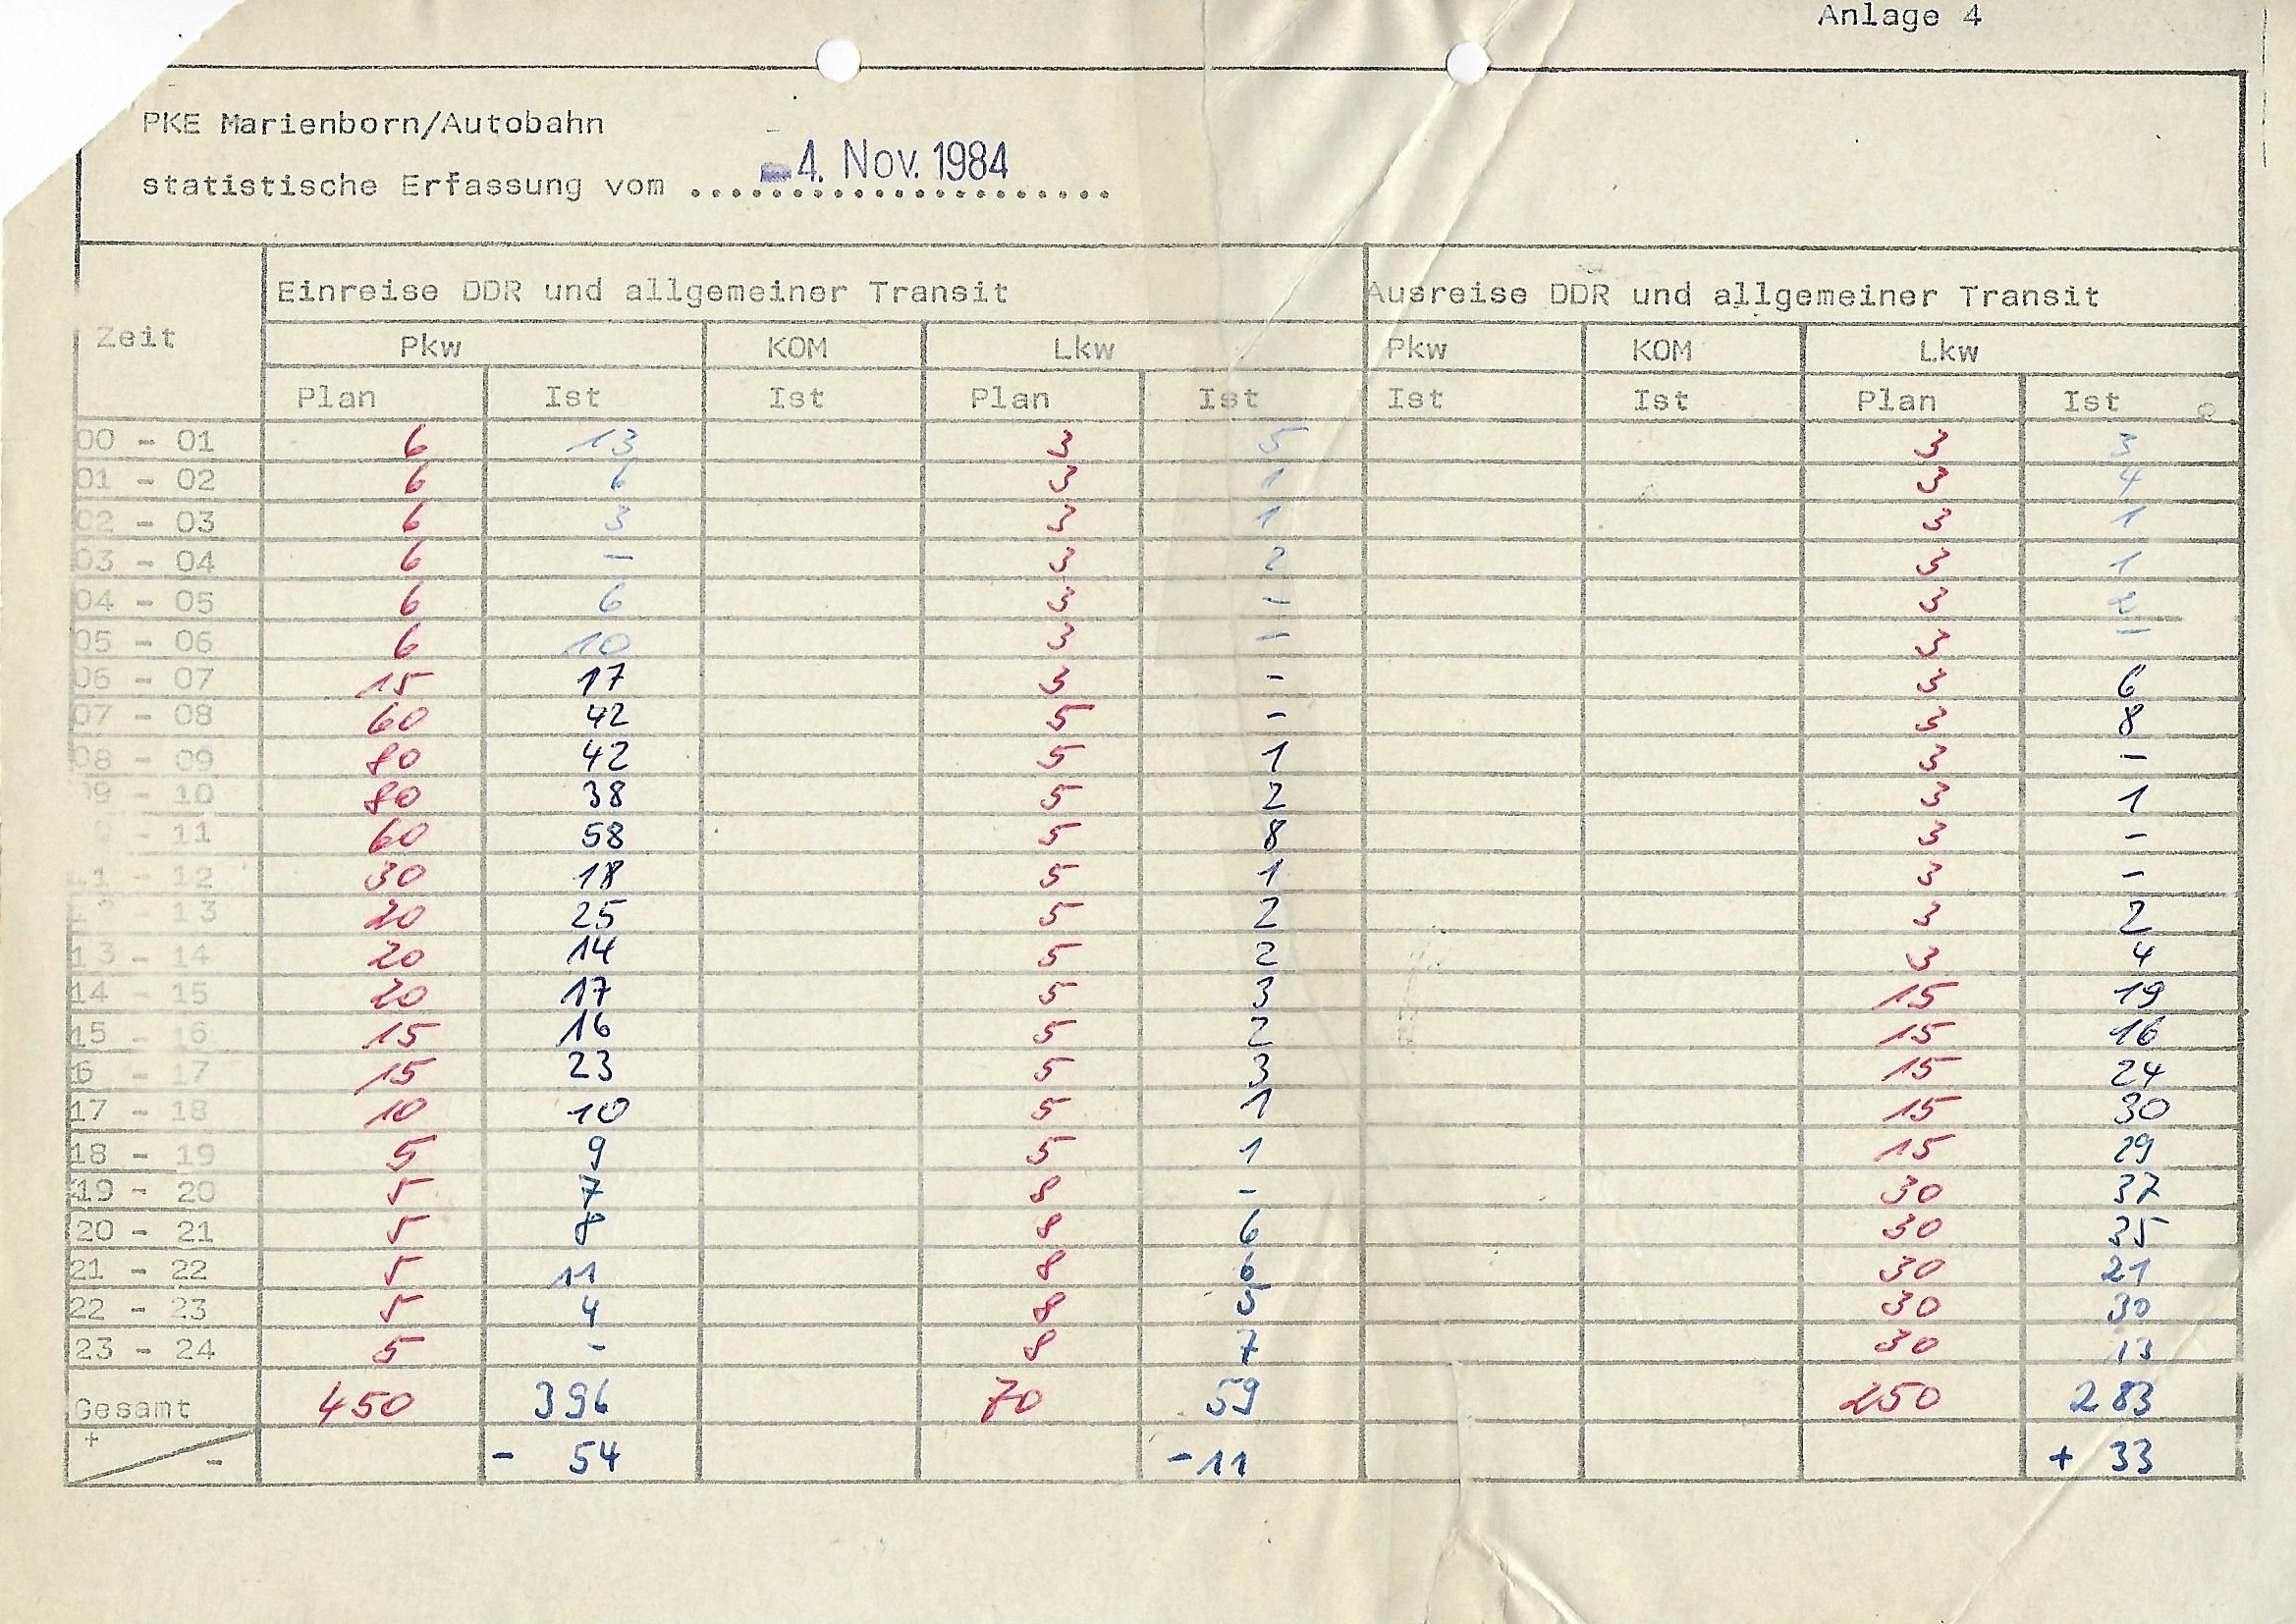 Anlage 4
PKE Marienborn/Autobahn
statistische Erfassung vom ..................... -4. Nov. 1984
Zeit Einreise DDR und allgemeiner Transit Ausreise DDR und allgemeiner Transit
Pkw KOM Lkw Pkw KOM Lkw
Plan Ist Ist Plan Ist Ist Ist Plan Ist
00 - 01 6 13 3 5 3 3
01 - 02 6 6 3 1 3 4
02 - 03 6 3 3 1 3 1
03 - 04 6 - 3 2 3 1
04 - 05 6 6 3 - 3 2
05 - 06 6 10 3 - 3 -
06 - 07 15 17 3 - 3 6
07 - 08 60 42 5 - 3 8
08 - 09 80 42 5 1 3 -
09 - 10 80 38 5 2 3 1
- 11 60 58 5 8 3 -
11 - 12 30 18 5 1 3 -
12 - 13 20 25 5 2 3 2
13 - 14 20 14 5 2 3 4
14 - 15 20 17 5 3 15 19
15 - 16 15 16 5 2 15 16
6 - 17 15 23 5 3 15 24
17 - 18 10 10 5 1 15 30
18 - 19 5 9 5 1 15 29
19 - 20 5 7 8 - 30 37
20 - 21 5 8 8 6 30 35
21 - 22 5 11 8 6 30 21
22 - 23 5 4 8 5 30 30
23 - 24 5 - 8 7 30 13
Gesamt 450 396 70 59 250 283
+ - - 54 -11 + 33